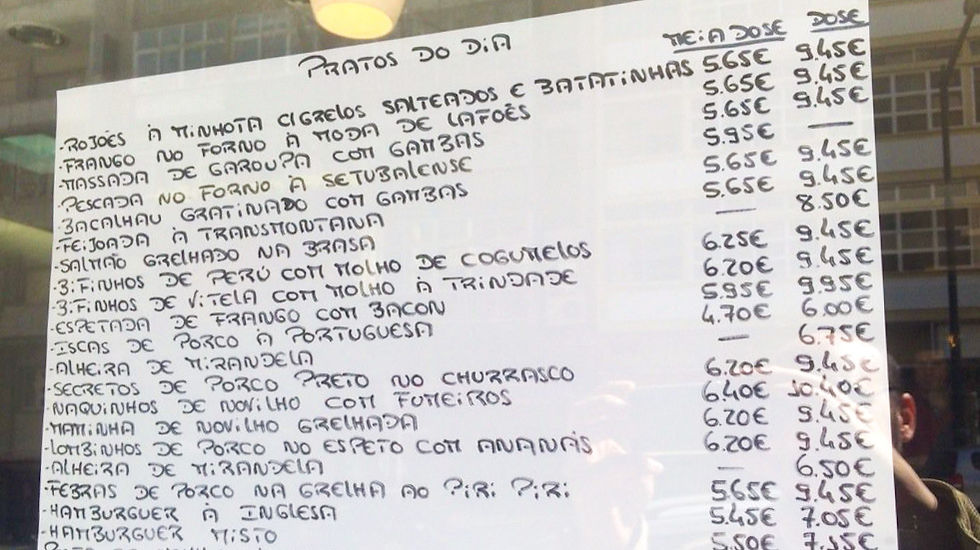 PRATOS DO DIA MEIA DOSE DOSE
-ROJÕES À MINHOTA CIGRELOS SALTEADOS E BATATINHAS 5.65€ 9.45€
-FRANGO NO FORNO À MODA DE LAFÕES 5.65€ 9.45€
-MASSADA DE GAROUPA COM GAMBAS 5.65€ 9.45€
-PESCADA NO FORNO À SETUBALENSE 5.95€ —
-BACALHAU GRATINADO COM GAMBAS 5.65€ 9.45€
-FEIJOADA À TRANSMONTANA 5.65€ 9.45€
-SALMÃO GRELHADO NA BRASA — 8.50€
-BIFINHOS DE PERÚ COM MOLHO DE COGUMELOS 6.25€ 9.45€
-BIFINHOS DE VITELA COM MOLHO À TRINDADE 6.20€ 9.45€
-ESPETADA DE FRANGO COM BACON 5.95€ 9.95€
-ISCAS DE PORCO À PORTUGUESA 4.70€ 6.00€
-ALHEIRA DE MIRANDELA — 6.75€
-SECRETOS DE PORCO PRETO NO CHURRASCO 6.20€ 9.45€
-NAQUINHOS DE NOVILHO COM FUMEIROS 6.40€ 10.40€
-MAMINHA DE NOVILHO GRELHADA 6.20€ 9.45€
-LOMBINHOS DE PORCO NO ESPETO COM ANANÁS 6.20€ 9.45€
-ALHEIRA DE MIRANDELA — 6.50€
-FEBRAS DE PORCO NA GRELHA AO PIRI PIRI 5.65€ 9.45€
-HAMBURGUER À INGLESA 5.45€ 7.05€
-HAMBURGUER MISTO 5.50€